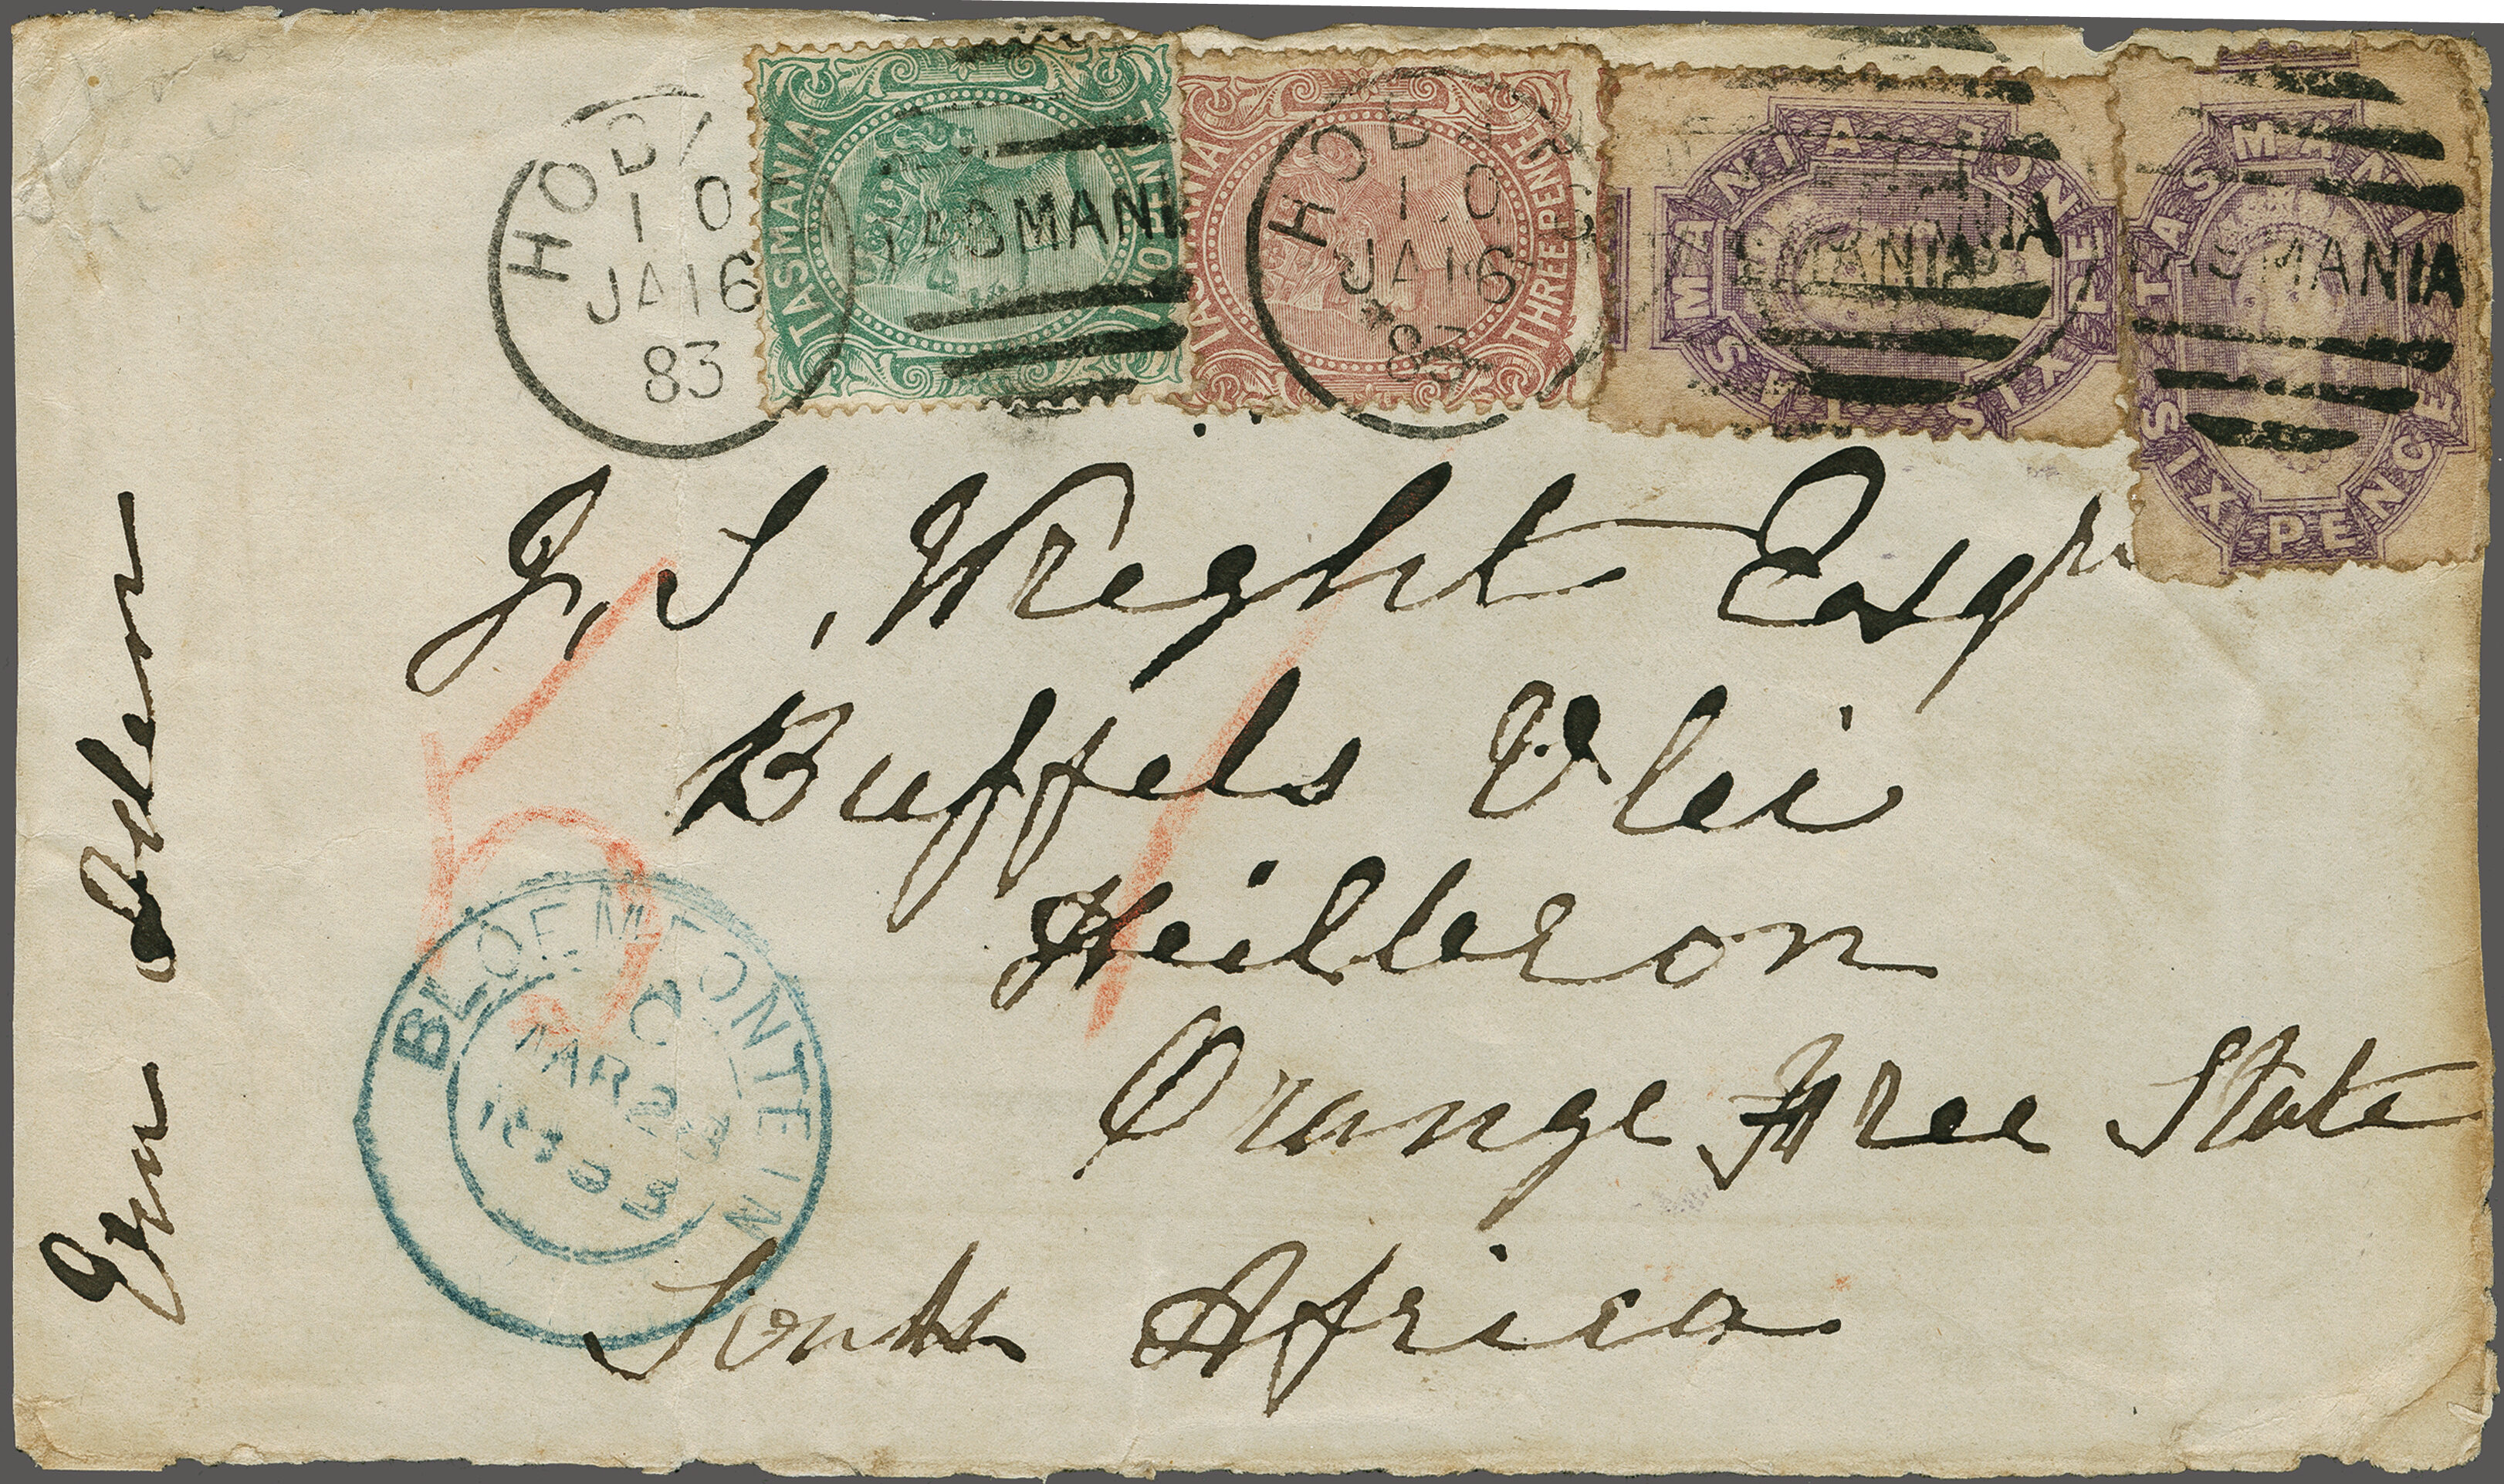 HOBA
10
JA16
83
TASMANIA
TWO PENCE
TASMANI
TASMANIA
THREE PENCE
HOBAR
10
JA16
83
TASMANIA
SIX PENCE
TASMANIA
TASMANI
SIX PENCE
TASMANIA
J, S, Wright Esqr
Buffels Vlei
Heilbron
Orange Free State
South Africa
BLOEMFONTEIN
MAR 23
1883